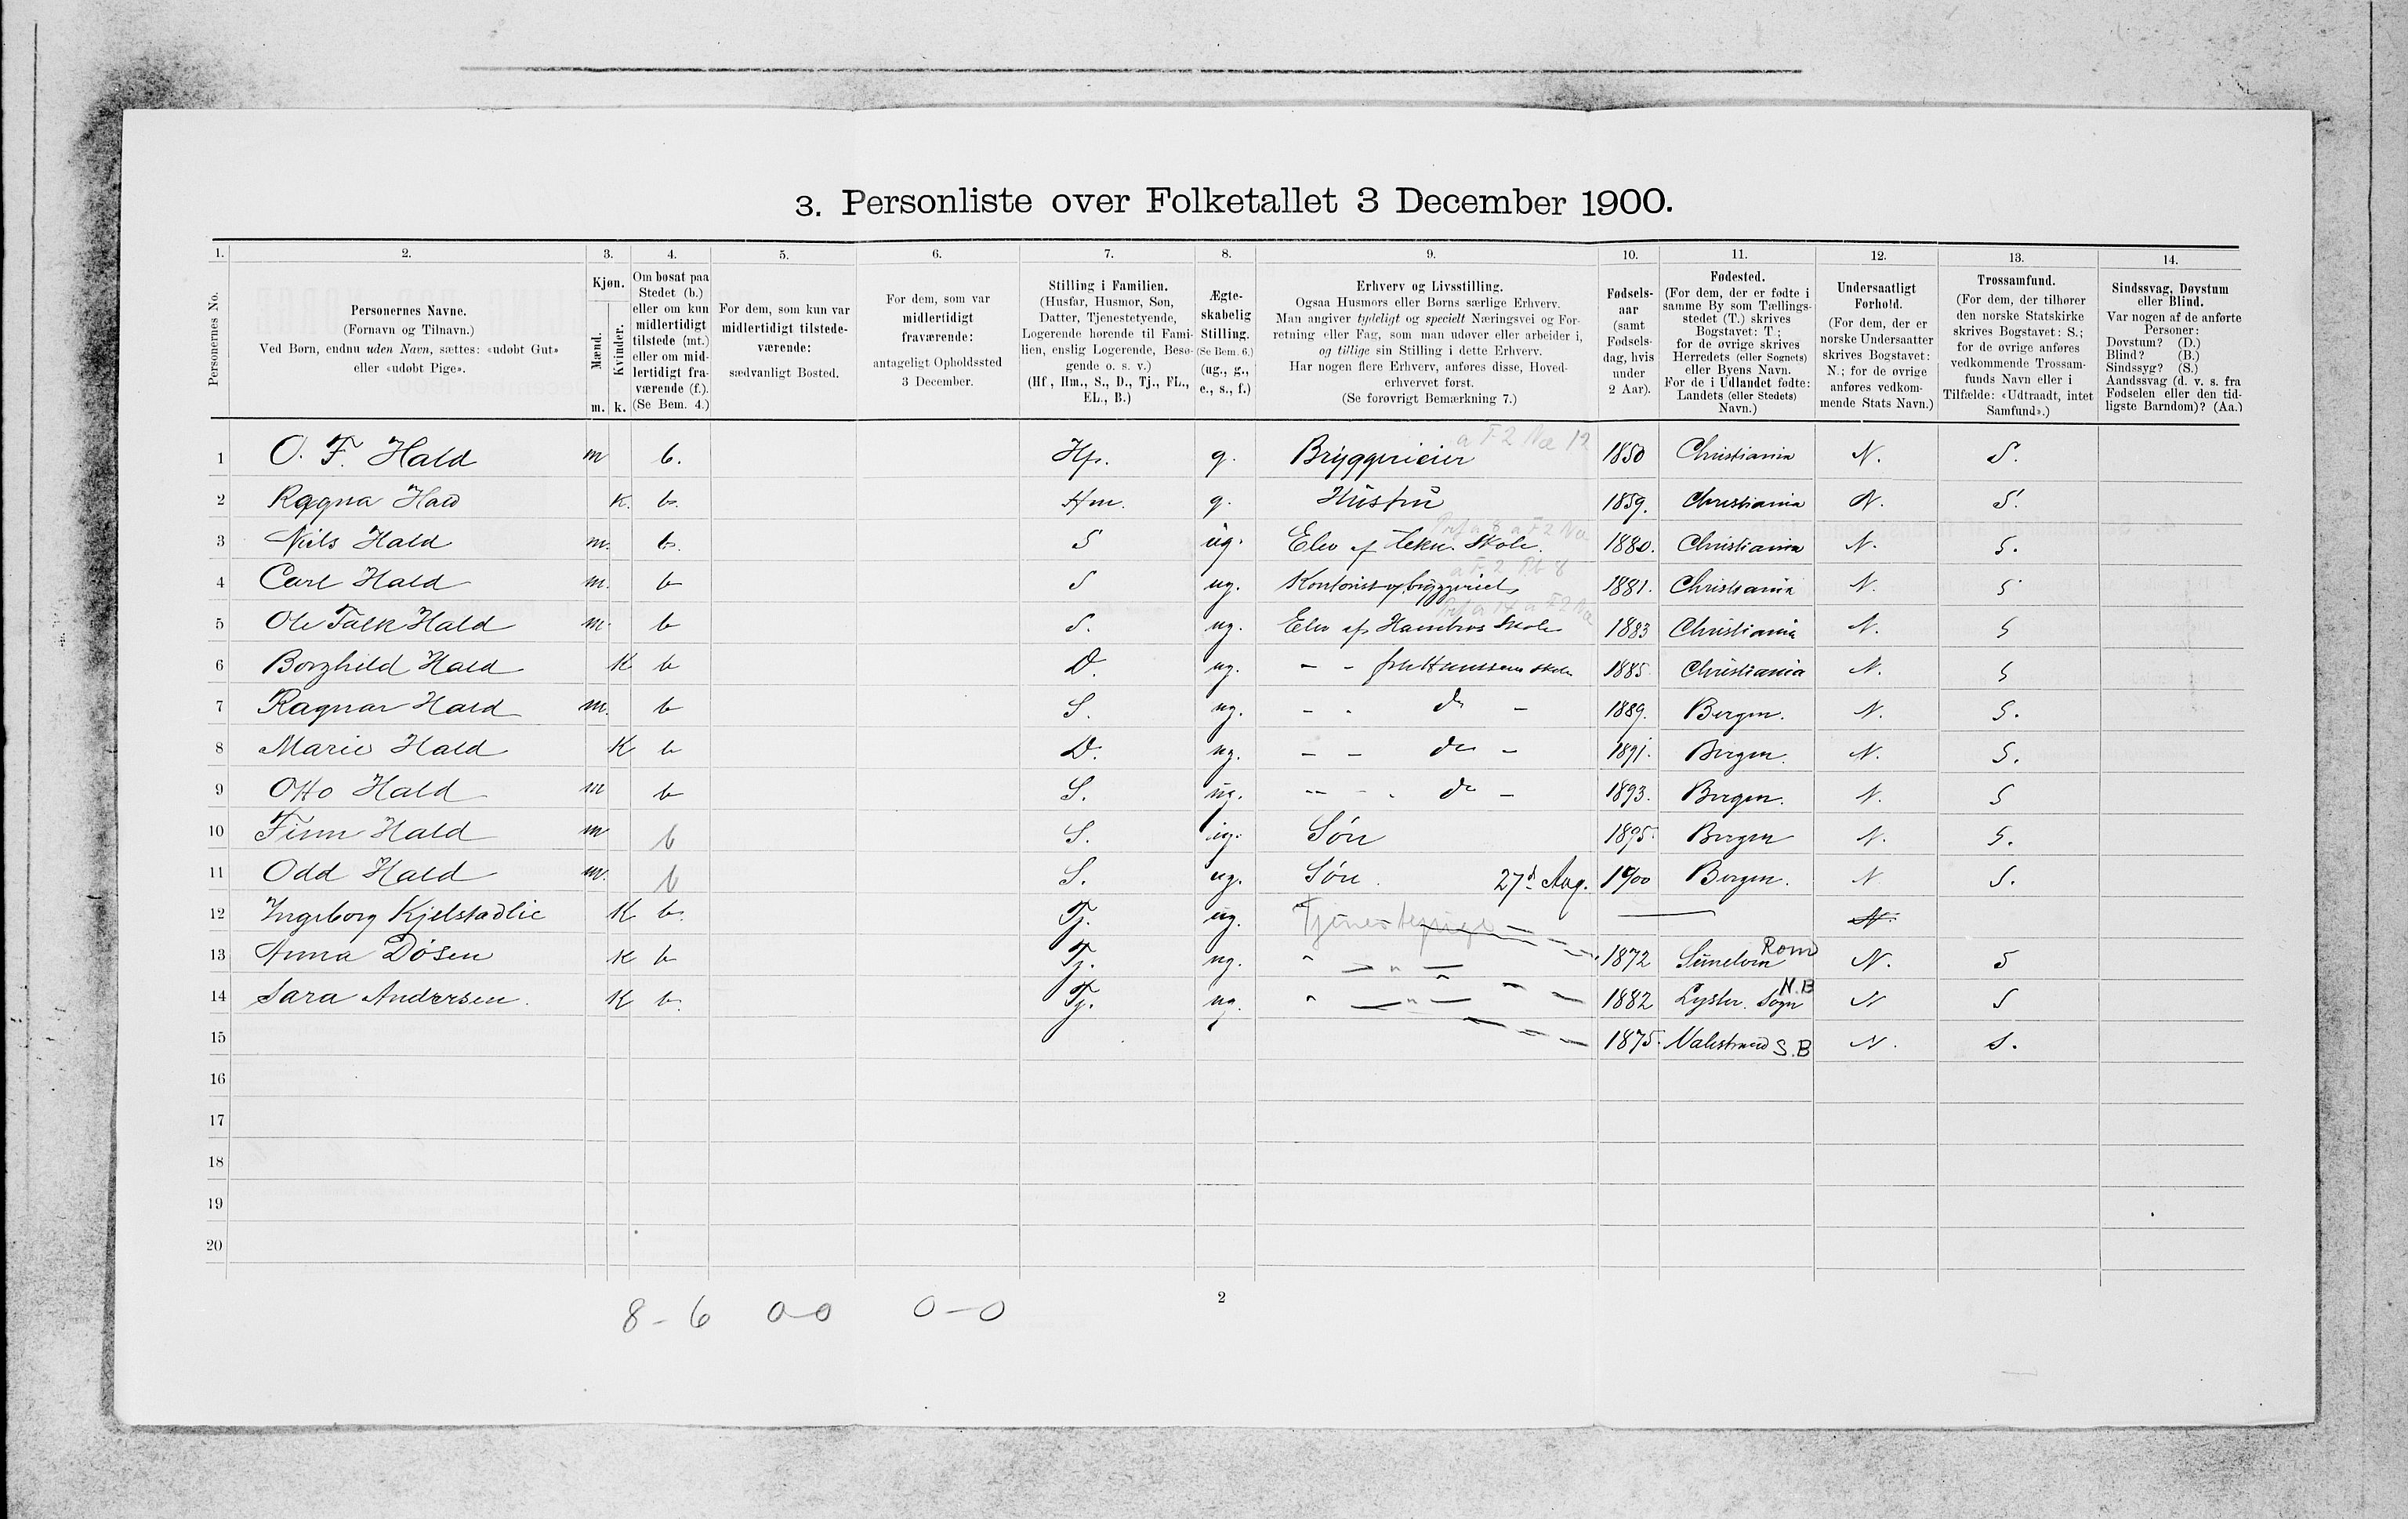 3. Personliste over Folketallet 3 December 1900.
1. 2. 3. 4. 5. 6. 7. 8. 9. 10. 11. 12. 13. 14.
Personernes No.
Personernes Navne.
(Fornavn og Tilnavn.)
Ved Børn, endnu uden Navn, sættes: «udøbt Gut»
eller «udøbt Pige».
Kjøn.
Mænd.
Kvinder.
m. k.
Om bosat paa
Stedet (b.)
eller om kun
midlertidigt
tilstede (mt.)
eller om mid-
lertidigt fra-
værende (f.).
(Se Bem. 4.)
For dem, som kun var
midlertidigt tilstede-
værende:
sædvanligt Bosted.
For dem, som var
midlertidigt
fraværende:
antageligt Opholdssted
3 December.
Stilling i Familien.
(Husfar, Husmor, Søn,
Datter, Tjenestetyende,
Logerende hørende til Fami-
lien, enslig Logerende, Besø-
gende o. s. v.)
(Hf., Hm., S., D., Tj., FL.,
EL., B.)
Ægte-
skabelig
Stilling.
(Se Bem. 6.)
(ug., g.,
e., s., f.)
Erhverv og Livsstilling.
Ogsaa Husmors eller Børns særlige Erhverv.
Man angiver tydeligt og specielt Næringsvei og For-
retning eller Fag, som man udøver eller arbeider i,
og tillige sin Stilling i dette Erhverv.
Har nogen flere Erhverv, anføres disse, Hoved-
erhvervet først.
(Se forøvrigt Bemærkning 7.)
Fødsels-
aar
(samt
Fødsels-
dag, hvis
under
2 Aar).
Fødested.
(For dem, der er fødte i
samme By som Tællings-
stedet (T.) skrives
Bogstavet: T.;
for de øvrige skrives
Herredets (eller Sognets)
eller Byens Navn.
For de i Udlandet fødte:
Landets (eller Stedets)
Navn.)
Undersaatligt
Forhold.
(For dem, der er
norske Undersaatter
skrives Bogstavet:
N.; for de øvrige
anføres vedkom-
mende Stats Navn.)
Trossamfund.
(For dem, der tilhører
den norske Statskirke
skrives Bogstavet: S.;
for de øvrige anføres
vedkommende Trossam-
funds Navn eller i
Tilfælde: «Udtraadt, intet
Samfund».)
Sindssvag, Døvstum
eller Blind.
Var nogen af de anførte
Personer:
Døvstum? (D.)
Blind? (B.)
Sindssyg? (S.)
Aandssvag (d. v. s. fra
Fødselen eller den tid-
ligste Barndom)? (Aa.)
1 O. F. Hald m b. Hf. g. Bryggerieier 1850 Christiania N. S.
2 Ragna Hald k. b. Hm. g. Hustru 1859. Christiania N. S.
3 Niels Hald m. b. S ug. Elev af tekn. Skole. 1880. Christiania N. S.
4 Carl Hald m. b S ug. Kontorist bryggeriet 1881. Christiania N. S
5 Ole Falk Hald m. b S. ug. Elev af Hambros Skole 1883 Christiania N. S
6 Borghild Hald K b D. ug. - - Skole 1885 Christiania N. S
7 Ragnar Hald m. b S. ug. - - do - 1889. Bergen. N. S.
8 Marie Hald K b D. ug. - - do - 1891. Bergen. N. S.
9 Otto Hald m b S. ug. - - do - 1893. Bergen. N. S
10 Finn Hald m b S. ug. Søn 1895. Bergen N. S.
11 Odd Hald m. b S. ug. Søn. 27d Aug. 1900 Bergen. N S.
12 Ingeborg Kjelstadlie K b. Tj. ug. Tjenestepige N.
13 Anna Døsen K b Tj. ug. " — " — 1872 Sunelven Romd N. S
14 Sara Andersen. K b. Tj. ug. " — " — 1882 Lyster. Sogn N.B N S
15 1875. Valestrand S.B N. S.
16
17
18
19
20
8 - 6 0-0 0-0
2